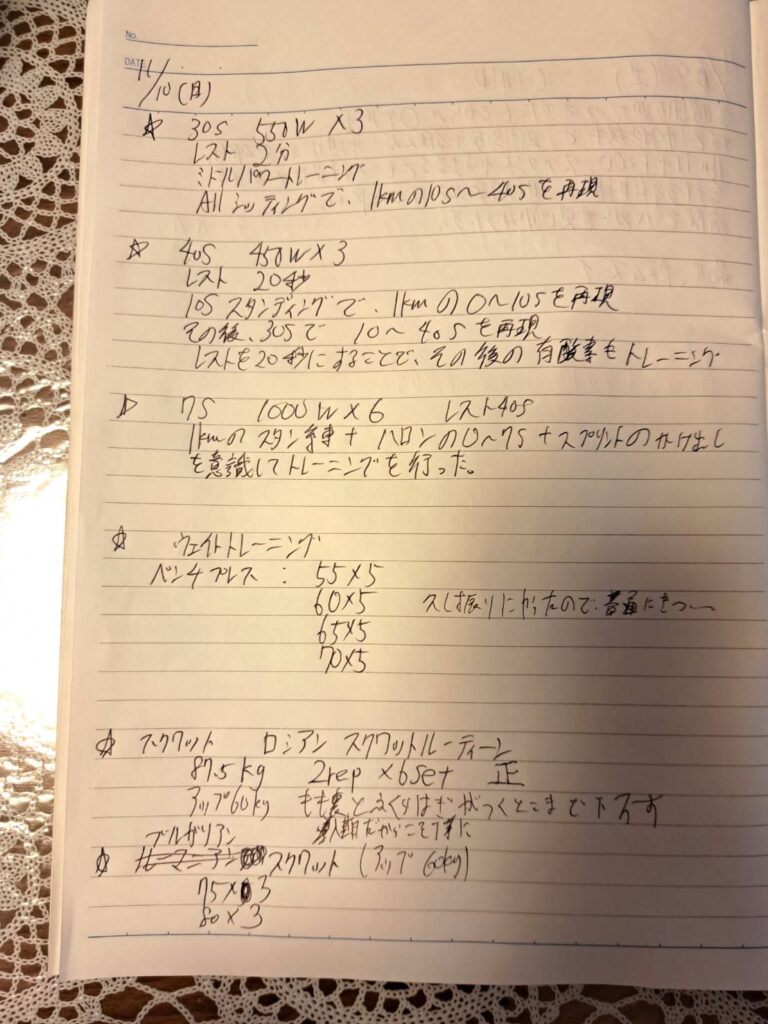 No.
DATE
11/10(日)
☆ 30S 550W×3
レスト 2分
ミドルパワートレーニング
Allシッティングで、1kmの10S〜40Sを再現
☆ 40S 450W×3
レスト 20秒
10S スタンディングで、1kmの0〜10Sを再現
その後、30Sで 10〜40Sを再現
レストを20秒にすることで、その後の有酸素もトレーニング
7S 1000W×6 レスト40S
1kmのスタン練+ハロンの0〜7S+スプリントのかけ出し
を意識してトレーニングを行った。
☆ ウェイトトレーニング
ベンチプレス: 55×5
60×5 久し振りにやったので、普通にきつ〜
65×5
70×5
☆ スクワット ロシアン スクワットルーティーン
87.5kg 2rep ×6set 正
アップ60kg もも裏とふくらはぎがつくとこまで下ろす
だからこそ丁寧に
ブルガリアン
☆ スクワット (アップ60kg)
75×3
80×3